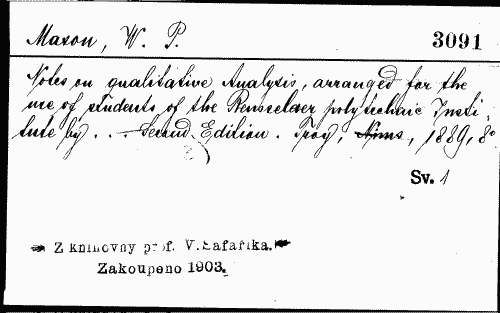 Mason, W. P. 3091
Notes on qualitative Analysis, arranged for the
use of students of the Rensselaer polytechnic Insti-
tute by . . . Second Edition. Troy, Nims, 1889, 8°
Sv. 1
Z knihovny prof. V. Šafaříka.
Zakoupeno 1903.